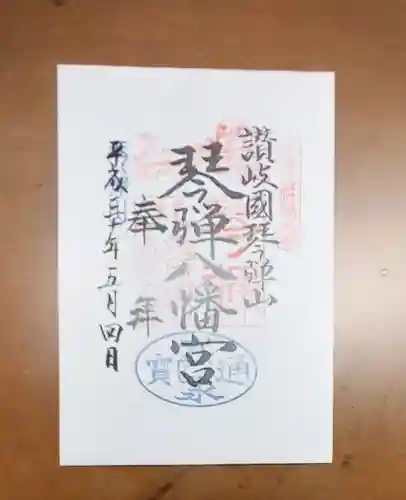 讃岐國琴弾山
琴弾八幡宮
奉拝
平成三十年五月四日
通寳